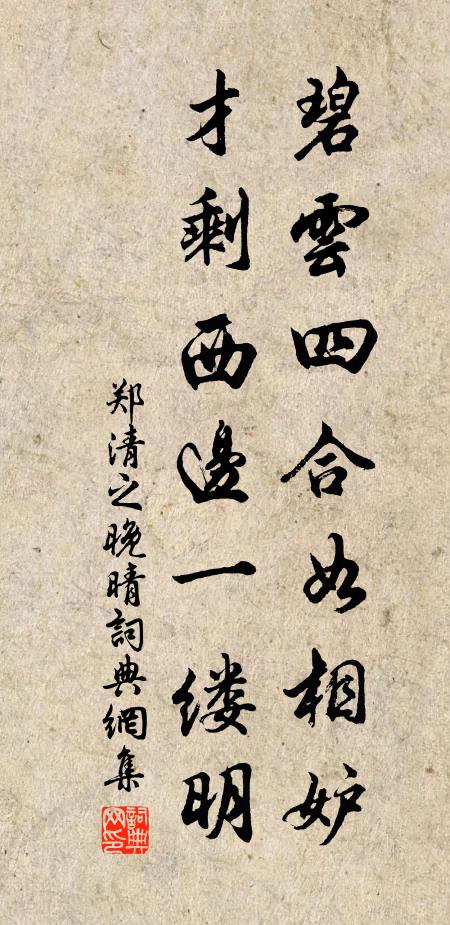 碧雲四合如相妒
才剩西邊一缕明
郑清之晚晴詞典網集
詞典网印